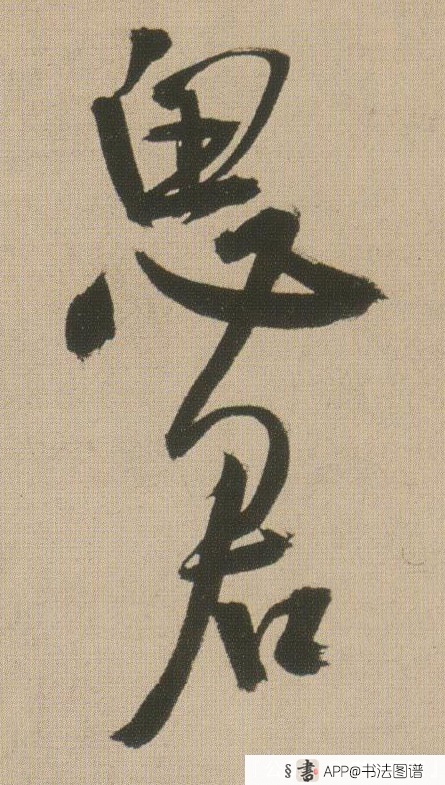 思君
§ 書 APP@书法图谱